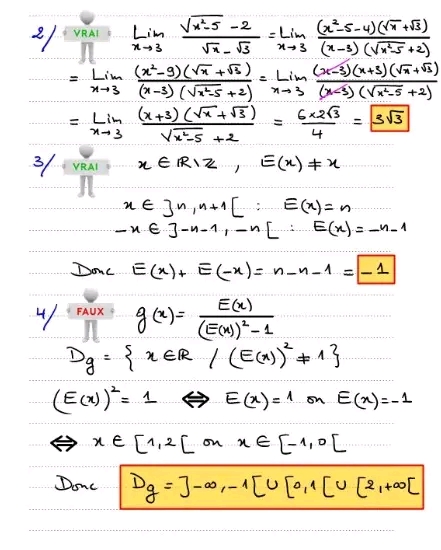 2/ VRAI Lim x→3 (√(x²-5) - 2)/(√x - √3) = Lim x→3 ((x²-5-4)(√x+√3))/((x-3)(√(x²-5)+2))
= Lim x→3 ((x²-9)(√x+√3))/((x-3)(√(x²-5)+2)) = Lim x→3 ((x-3)(x+3)(√x+√3))/((x-3)(√(x²-5)+2))
= Lim x→3 ((x+3)(√x+√3))/(√(x²-5)+2) = (6×2√3)/4 = 3√3
3/ VRAI x ∈ ℝ\ℤ , E(x) ≠ x
x ∈ ]n, n+1[ : E(x) = n
-x ∈ ]-n-1, -n[ : E(x) = -n-1
Donc E(x) + E(-x) = n-n-1 = -1
4/ FAUX g(x) = E(x)/((E(x))² - 1)
Dg = { x ∈ ℝ / (E(x))² ≠ 1 }
(E(x))² = 1 ⇔ E(x) = 1 ou E(x) = -1
⇔ x ∈ [1, 2[ ou x ∈ [-1, 0[
Donc Dg = ]-∞, -1[ ∪ [0, 1[ ∪ [2, +∞[